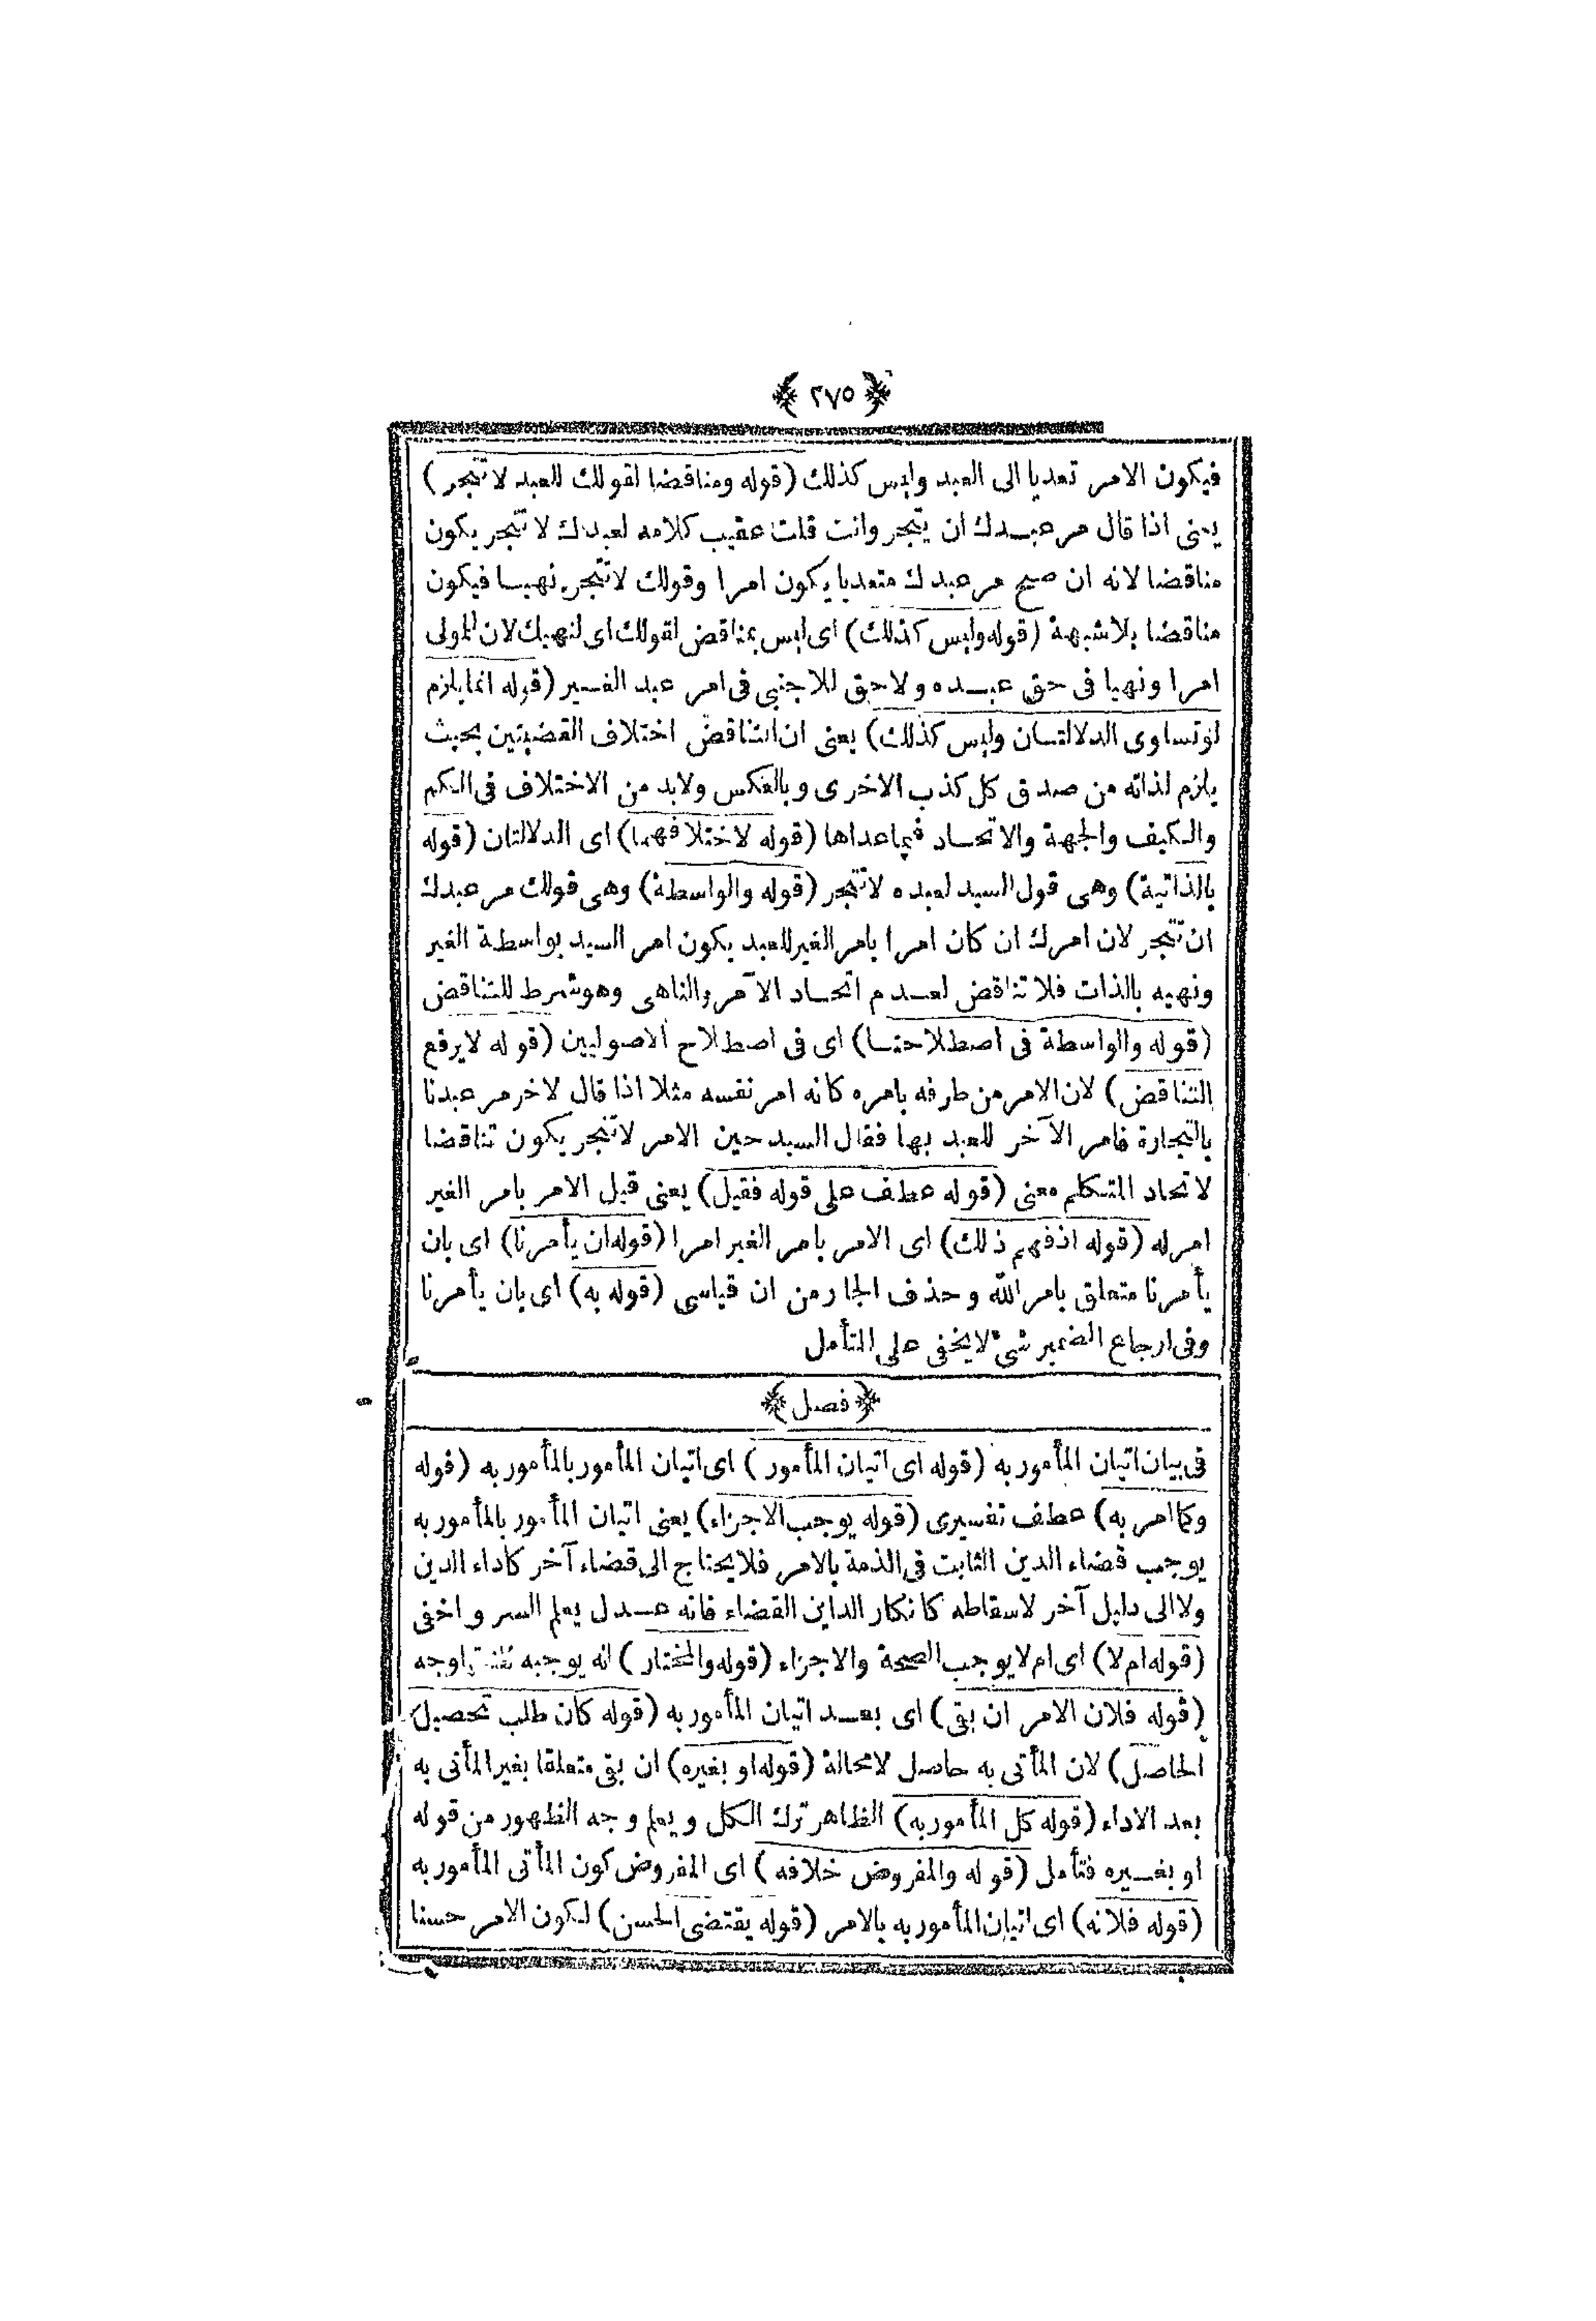 ﴿ ٢٧٥ ﴾
فيكون الامر تعديا الى العبد وليس كذلك (قوله ومناقضا لقولك للعبد لا تتجر)
يعنى اذا قال مر عبدك ان يتجر وانت قلت عقيب كلامه لعبدك لا تتجر يكون
مناقضا لانه ان صح مر عبدك متعديا يكون امرا وقولك لا تتجر نهيا فيكون
مناقضا بلا شبهة (قوله وليس كذلك) اى ليس بمناقض لقولك اى لنهيك لان للمولى
امرا ونهيا فى حق عبده ولا حق للاجنبى فى امر عبد الغير (قوله انما يلزم
لو تساوى الدلالتان وليس كذلك) يعنى ان التناقض اختلاف القضيتين بحيث
يلزم لذاته من صدق كل كذب الاخرى وبالعكس ولابد من الاختلاف فى الكم
والكيف والجهة والاتحاد فيما عداها (قوله لاختلافهما) اى الدلالتان (قوله
بالذاتية) وهى قول السيد لعبده لا تتجر (قوله والواسطة) وهى قولك مر عبدك
ان تتجر لان امرك ان كان امرا بامر الغير للعبد يكون امر السيد بواسطة الغير
ونهيه بالذات فلا تناقض لعدم اتحاد الآمر والناهى وهو شرط للتناقض
(قوله والواسطة فى اصطلاحنا) اى فى اصطلاح الاصوليين (قوله لا يرفع
التناقض) لان الامر من طرفه بامره كانه امر نفسه مثلا اذا قال لاخر مر عبدنا
بالتجارة فامر الآخر للعبد بها فقال السيد حين الامر لا تتجر يكون تناقضا
لاتحاد المتكلم معنى (قوله عطف على قوله فقيل) يعنى قيل الامر بامر الغير
امر له (قوله اذ فهم ذلك) اى الامر بامر الغير امرا (قوله ان يأمرنا) اى بان
يأمرنا متعلق بامر الله وحذف الجار من ان قياسى (قوله به) اى بان يأمرنا
وفى ارجاع الضمير شئ لا يخفى على المتأمل
﴿ فصل ﴾
فى بيان اتيان المأمور به (قوله اى اتيان المأمور) اى اتيان المأمور بالمأمور به (قوله
وكما امر به) عطف تفسيرى (قوله يوجب الاجزاء) يعنى اتيان المأمور بالمأمور به
يوجب قضاء الدين الثابت فى الذمة بالامر فلا يحتاج الى قضاء آخر كاداء الدين
ولا الى دليل آخر لاسقاطه كانكار الداين القضاء فانه عدل يعلم السر واخفى
(قوله ام لا) اى ام لا يوجب الصحة والاجزاء (قوله والمختار) انه يوجبه اوجه
(قوله فلان الامر ان بقى) اى بعد اتيان المأمور به (قوله كان طلب تحصيل
الحاصل) لان المأتى به حاصل لا محالة (قوله او بغيره) ان بقى متعلقا بغير المأتى به
بعد الاداء (قوله كل المأمور به) الظاهر ترك الكل ويعلم وجه الظهور من قوله
او بغيره فتأمل (قوله والمفروض خلافه) اى المفروض كون المأتى المأمور به
(قوله فلانه) اى اتيان المأمور به بالامر (قوله يقتضى الحسن) لكون الامر حسنا